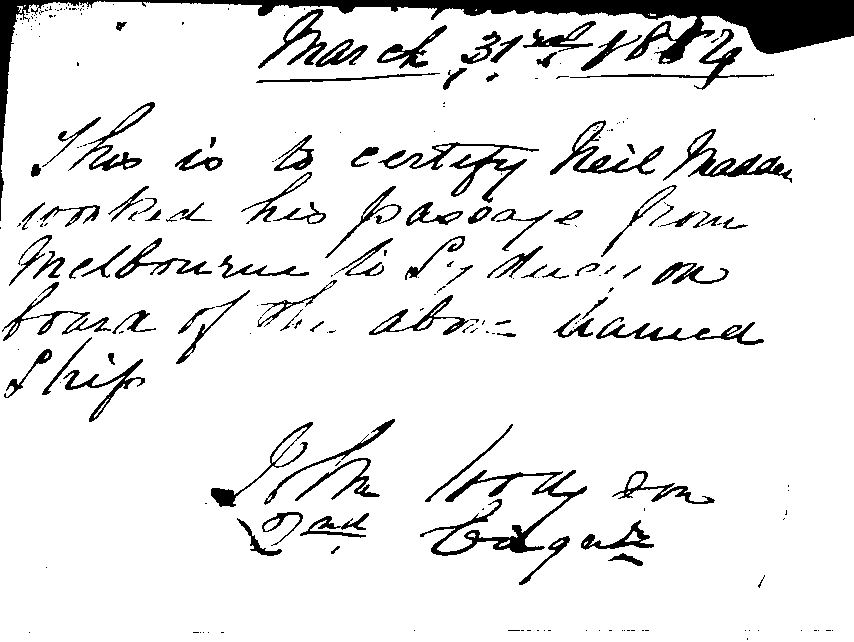 March 31rd 1884
This is to certify Neil Madden
worked his passage from
Melbourne to Sydney on
board of the above named
Ship
John
2nd